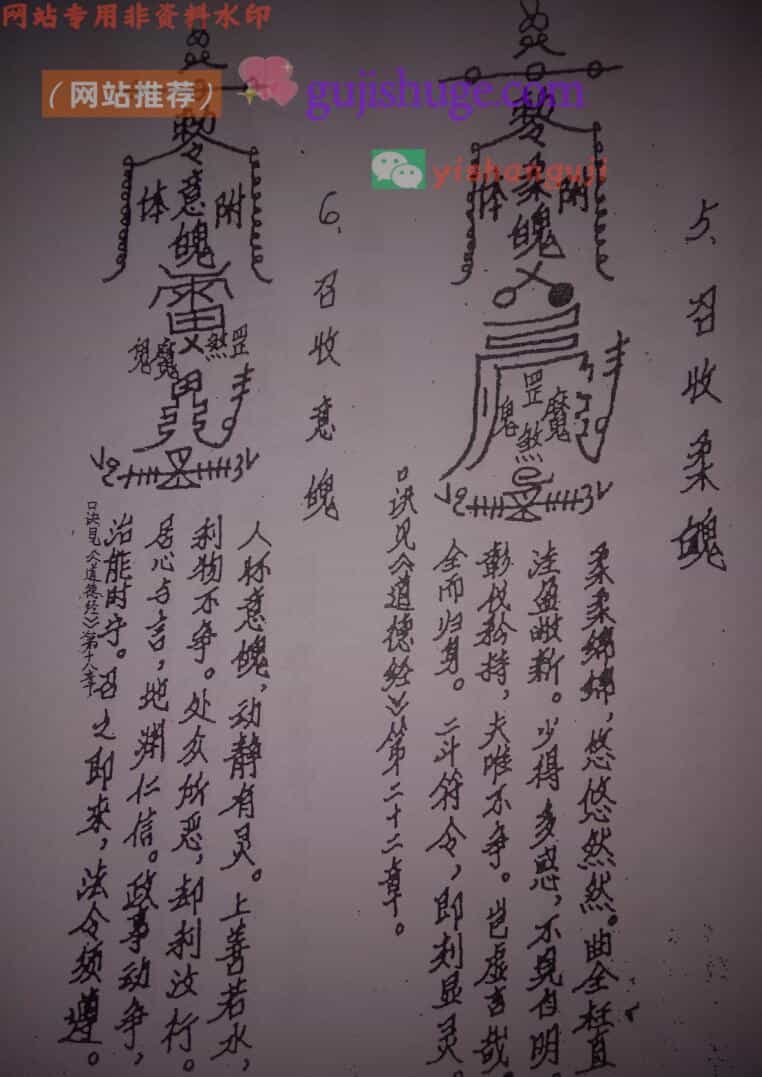 网站专用非资料水印
（网站推荐）
gujishuge.com
yishanguji
5、召收柔魄
敕令柔魄
附体
罡煞魔
柔柔绵绵，悠悠然然。曲全枉直，
洼盈敝新。少得多惑，不见自明。
彰伐矜持，夫唯不争。岂虚言哉，
全而归身。二斗符令，即刻显灵。
口诀见《道德经》第二十二章。
6、召收意魄
敕令意魄
附体
雷
罡煞魔
人怀意魄，动静有灵。上善若水，
利物不争。处众所恶，却利汝行。
居心与言，地渊仁信。政事动争，
治能时宁。召之即来，法令须遵。
口诀见《道德经》第十八章